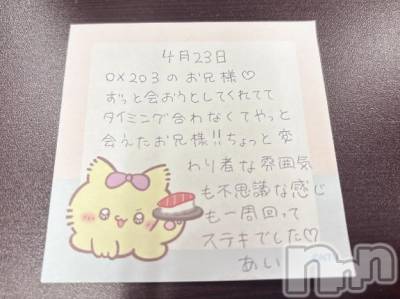 4月23日
0×203のお兄様♡
ずっと会おうとしてくれてて
タイミング合わなくてやっと
会えたお兄様!!ちょっと変
わり者な雰囲気
も不思議な感じ
も一周回って
ステキでした♡
あい